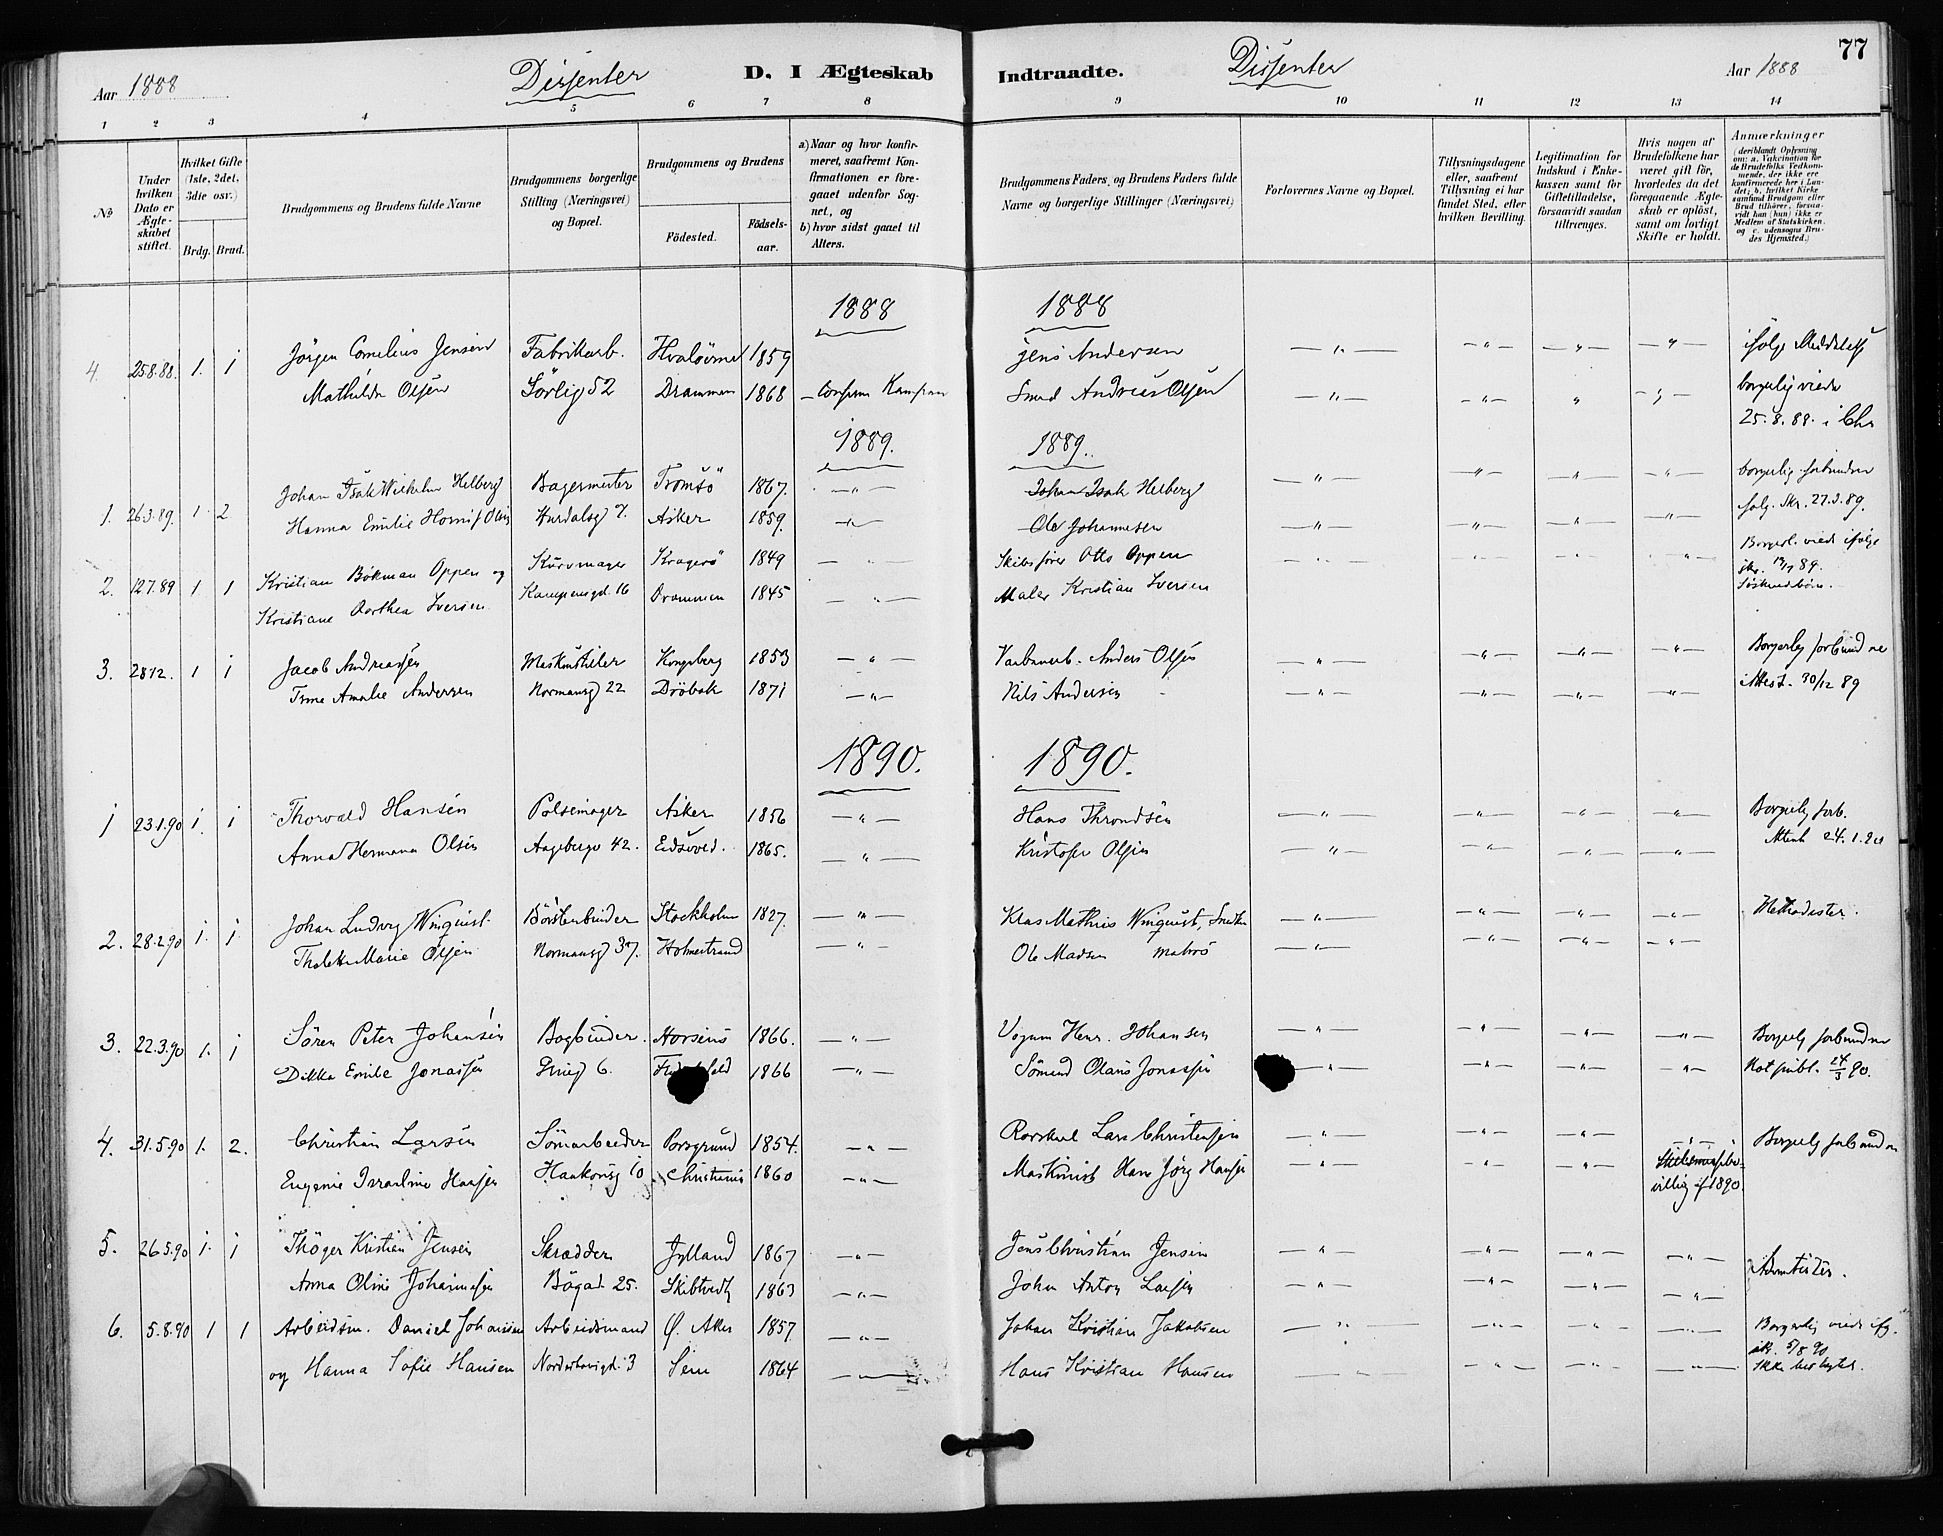 77
Aar 1888 Dissenter D. I Ægteskab Indtraadte. Dissenter Aar 1888
1 2 3 4 5 6 7 8 9 10 11 12 13 14
No
Under hvilken Dato er Ægteskabet stiftet.
Hvilket Gifte (1ste, 2det, 3die osv.)
Brdg. Brud.
Brudgommens og Brudens fulde Navne
Brudgommens borgerlige Stilling (Næringsvei) og Bopæl.
Brudgommens og Brudens
Födested.
Födselsaar.
a) Naar og hvor konfirmeret, saafremt Konfirmationen er foregaaet udenfor Sognet, og
b) hvor sidst gaaet til Alters.
Brudgommens Faders og Brudens Faders fulde Navne og borgerlige Stillinger (Næringsvei)
Forlovernes Navne og Bopæl.
Tillysningsdagene eller, saafremt Tillysning ei har fundet Sted, efter hvilken Bevilling.
Legitimation for Indskud i Enkekassen samt for Giftetilladelse, forsaavidt saadan tiltrænges.
Hvis nogen af Brudefolkene har været gift før, hvorledes da det foregaaende Ægteskab er oplöst, samt om lovligt Skifte er holdt.
Anmærkninger
(deriblandt Oplysning om: a. Vakcination for de Brudefolks Vedkommende, der ikke ere konfirmerede her i Landet; b. hvilket Kirkesamfund Brudgom eller Brud tilhörer, forsaavidt han (hun) ikke er Medlem af Statskirken, og c. udensogns Brudes Hjemsted.)
1888 1888
4. 25.8.88. 1. 1 Jörgen Cornelius Jensen Fabrikarb. 1859 Jens Andersen ifølge Meddelelse
Mathilde Olsen Sörlig 52 Drammen 1868 Smed Andreas Olsen borgerlig viede
25.8.88. i Chr
1889. 1889.
Johan Isak Wilhelm Helberg Bagermester Tromsö 1867. Johan Isak Helberg borgerlig forbundne
1. 26.3.89. 1 2 Hanna Emilie Hurdalsg 7. Asker 1859. Ole Johannesen 27.3.89.
2. 12.7.89 1 1 Kristian Bökman Oppen og Kurvmager Kragerö 1849 Skibsfører Otto Oppen Borgerl. viede ifølge
Kristiane Dorthea Iversen Kampensgd. 16 Drammen 1845 Maler Kristian Iversen skr. 89.
Söskendebörn.
3. 28.12. 1 1 Jacob Andreassen Kongsberg 1853 Anders Olsen Borgerlig forbundne
Trine Amalie Andersen Normansg 22 Dröbak 1871 Nils Andersen Attest. 30/12 89
1890. 1890.
1 23.1.90 1. 1 Thorvald Hansen Pölsemager Asker 1856 Hans Throndsen Borgerlig forb.
Anna Hermana Olsen Aagebergv 42. Eidsvold. 1865. Kristofer Olsen Attest 24.1.90
2. 28.2.90 1. 1. Johan Ludvig Winquist Börstenbinder Stockholm 1827. Klas Mathias Winquist, Methodister.
Marie Olsen Normansg 37. Holmestrand Ole Madsen matros
3. 22.3.90 1. 1 Sören Peter Johansen Bogbinder. Horsens 1866. Henr. Johansen Borgerlig forbundne
Dikka Emilie Jonassen 6. 1866 Olaus Jonassen Not publ. 24/3 90.
4. 31.5.90 1. 2. Christian Larsen Porsgrund 1854. Lars Christensen Borgerlig forbundne
Eugenie Israeline Hansen Haakonsg 10 Christiania 1860 Maskinist Hans Jörg Hansen
1890.
5. 26.5.90 1. 1 Thöger Kristian Jensen Skrædder Jylland 1867 Jens Christian Jensen Adventister.
Anna Oline Johannesen Bögad 25. Skibtvedt 1863 Johan Anton Larsen
6. 5.8.90 1 1 Arbeidsm. Daniel Johansen Arbeidsmand Ø. Aker 1857 Johan Kristian Jakobsen Borgerlig viede ifg.
og Hanna Sofie Hansen Norderhovgd. 3 Sem 1864 Hans Kristian Hansen skr. 5/8 90
Ikke beslegtet.